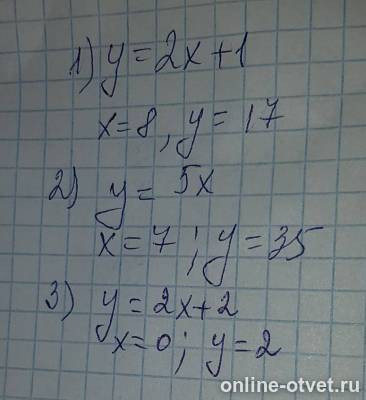 1) y = 2x + 1
x = 8, y = 17
2) y = 5x
x = 7; y = 35
3) y = 2x + 2
x = 0; y = 2
online-otvet.ru